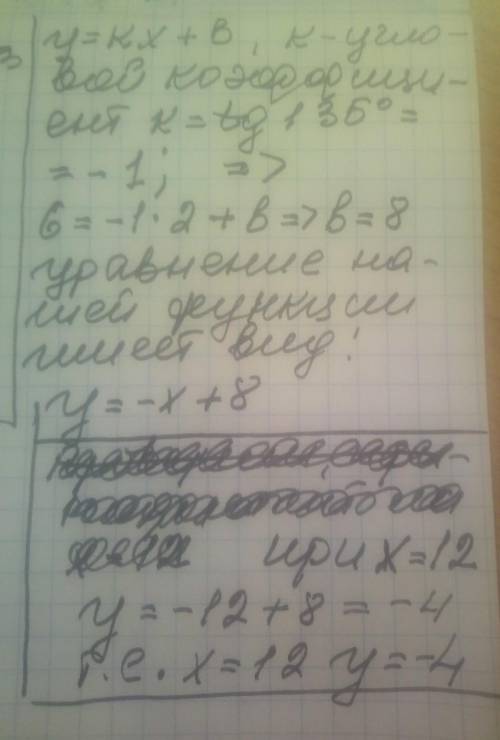 y = kx + в, к - угло-
вой коэффици-
ент к = tg 135° =
= -1; =>
6 = -1·2 + в => в = 8
уравнение на-
шей функции
имеет вид:
y = -x + 8
при x = 12
y = -12 + 8 = -4
т.е. x = 12 y = -4